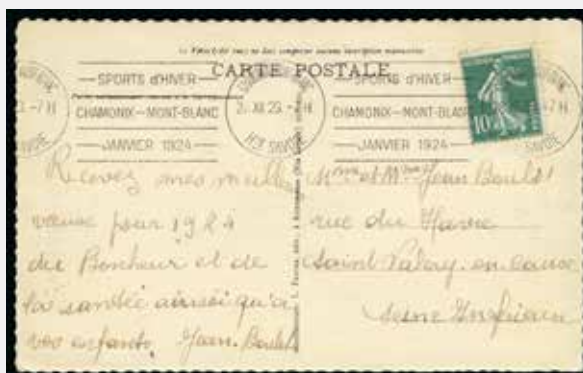 CARTE POSTALE
SPORTS d'HIVER
CHAMONIX-MONT-BLANC
JANVIER 1924
SPORTS d'HIVER
CHAMONIX-MONT-BLANC
JANVIER 1924
XII 23
Hte SAVOIE
10c
Recevez mes meilleurs
vœux pour 1924
du Bonheur et de
la santée ainssi qu'a
vos enfants. Jean Boulet
Mme et Mr Jean Boulet
rue du Havre
Saint Valery en Caux
Seine Inferieure